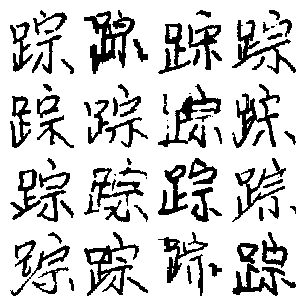 踪踪踪踪
踪踪踪踪
踪踪踪踪
踪踪踪踪